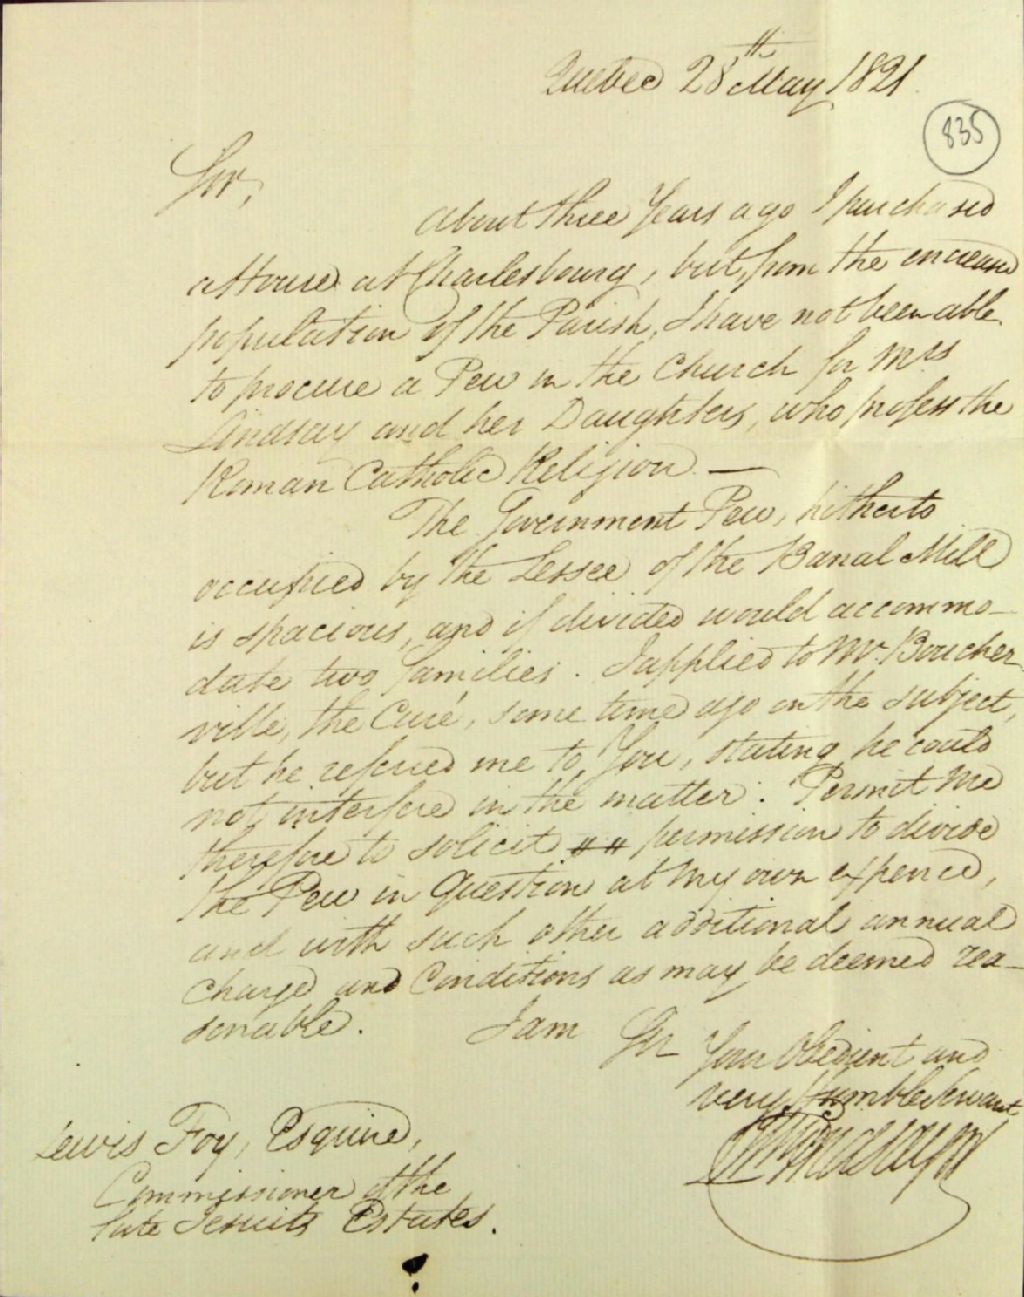 Quebec 28th May 1821.
835
Sir,
About three Years ago I purchased
a House at Charlesbourg, but, from the encreased
population of the Parish, I have not been able
to procure a Pew in the Church for Mrs
Lindsay and her Daughters, who profess the
Roman Catholic Religion. —
The Government Pew, hitherto
occupied by the Lessee of the Banal Mill
is spacious, and if divided would accommo-
date two families. I applied to Mr. Boucher-
ville, the Curé, some time ago on the subject,
but he referred me to You, stating he could
not interfere in the matter. Permit me
therefore to solicit permission to divide
the Pew in Question at my own expence,
and with such other additional annual
charge and Conditions as may be deemed rea-
sonable. I am Sir
Your Obedient and
very Humble Servant
Lindsay
Lewis Foy, Esquire,
Commissioner of the
late Jesuits Estates.